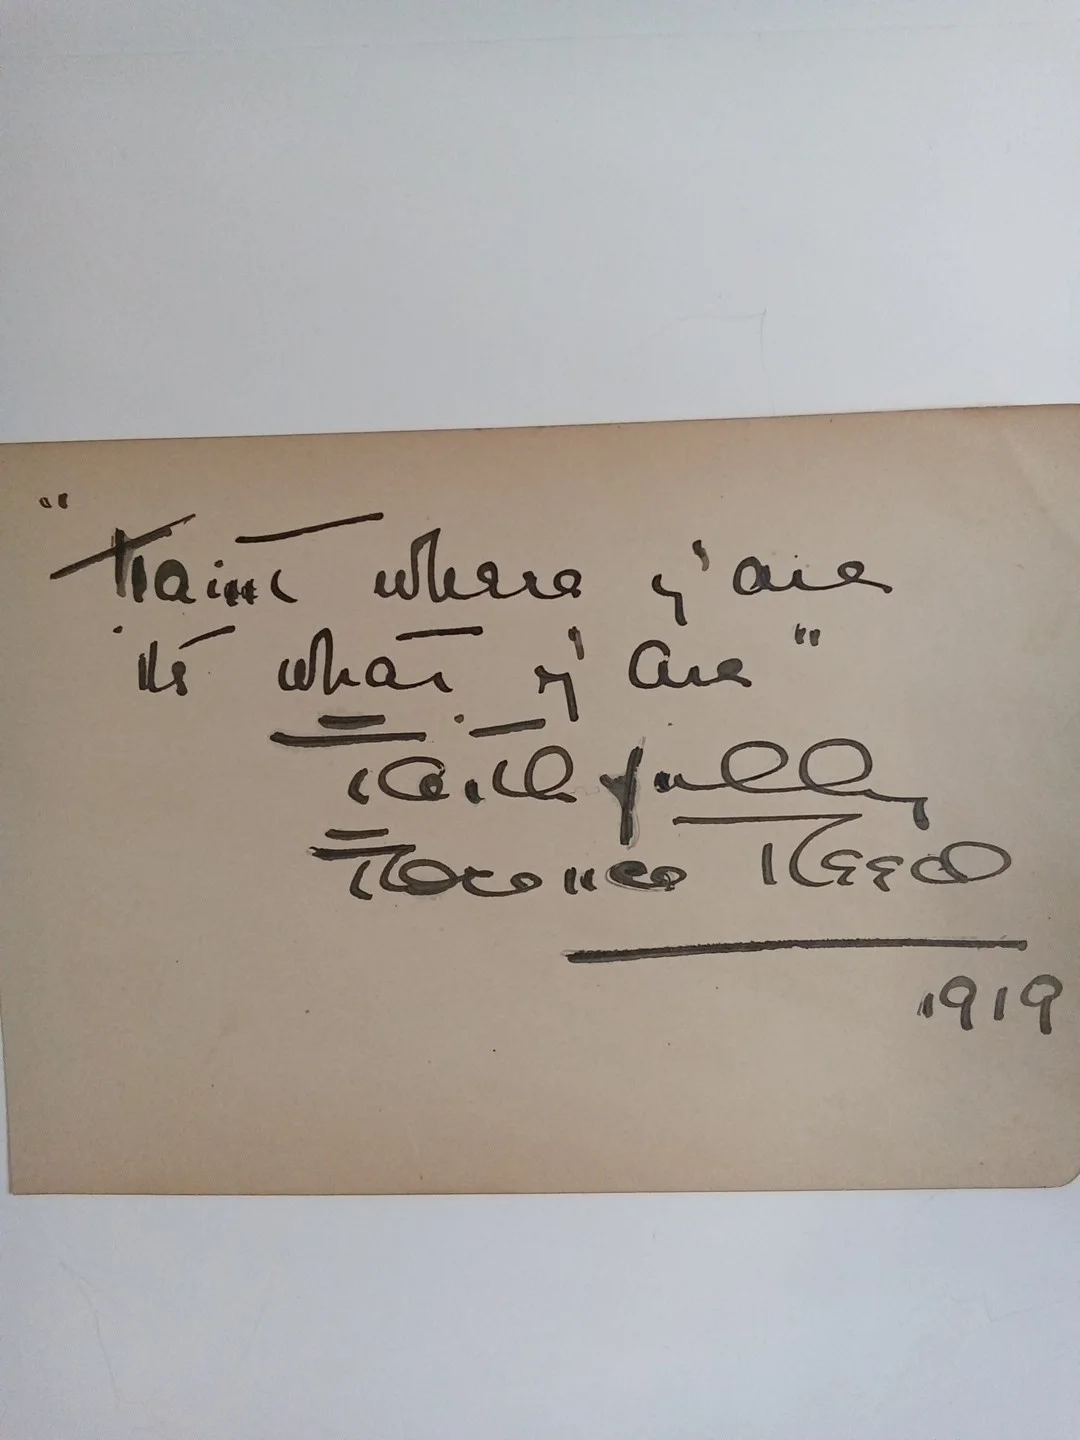 "Taint where y'are
its what y'are"
Faithfully
Florence Reed
1919